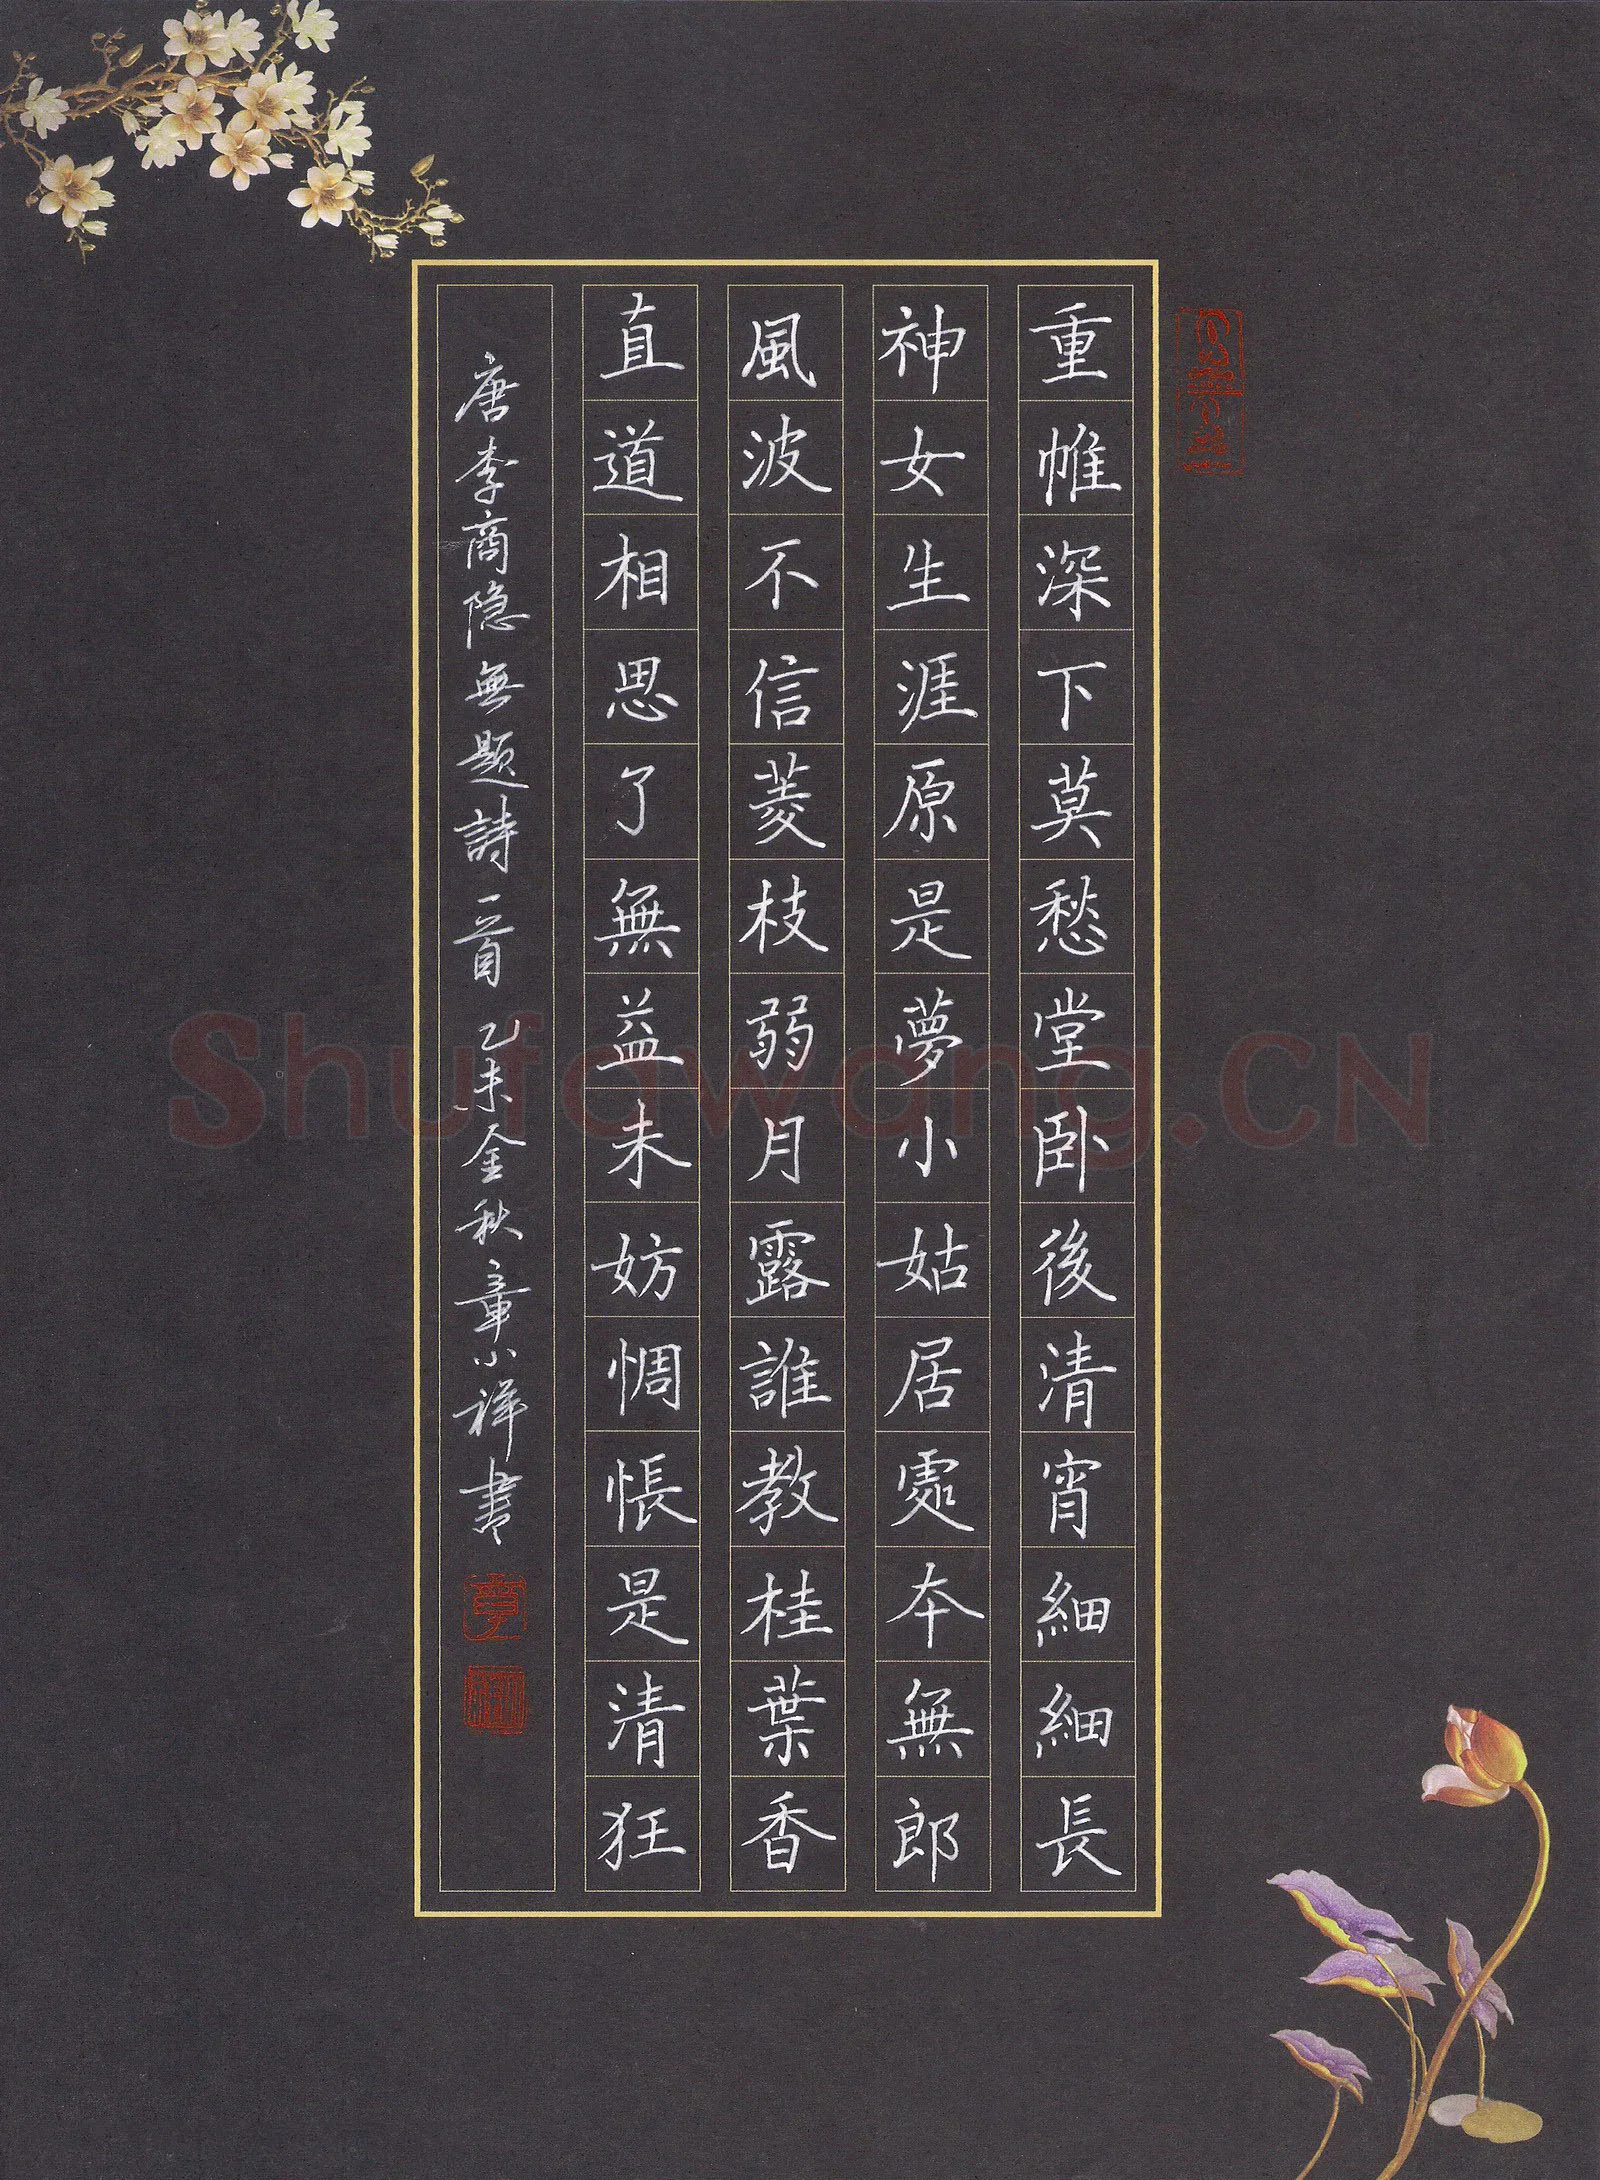 重帷深下莫愁堂卧後清宵細細長
神女生涯原是夢小姑居處本無郎
風波不信菱枝弱月露誰教桂葉香
直道相思了無益未妨惆悵是清狂
唐李商隐無題詩一首 乙未金秋章小祥書
Shufawang.CN